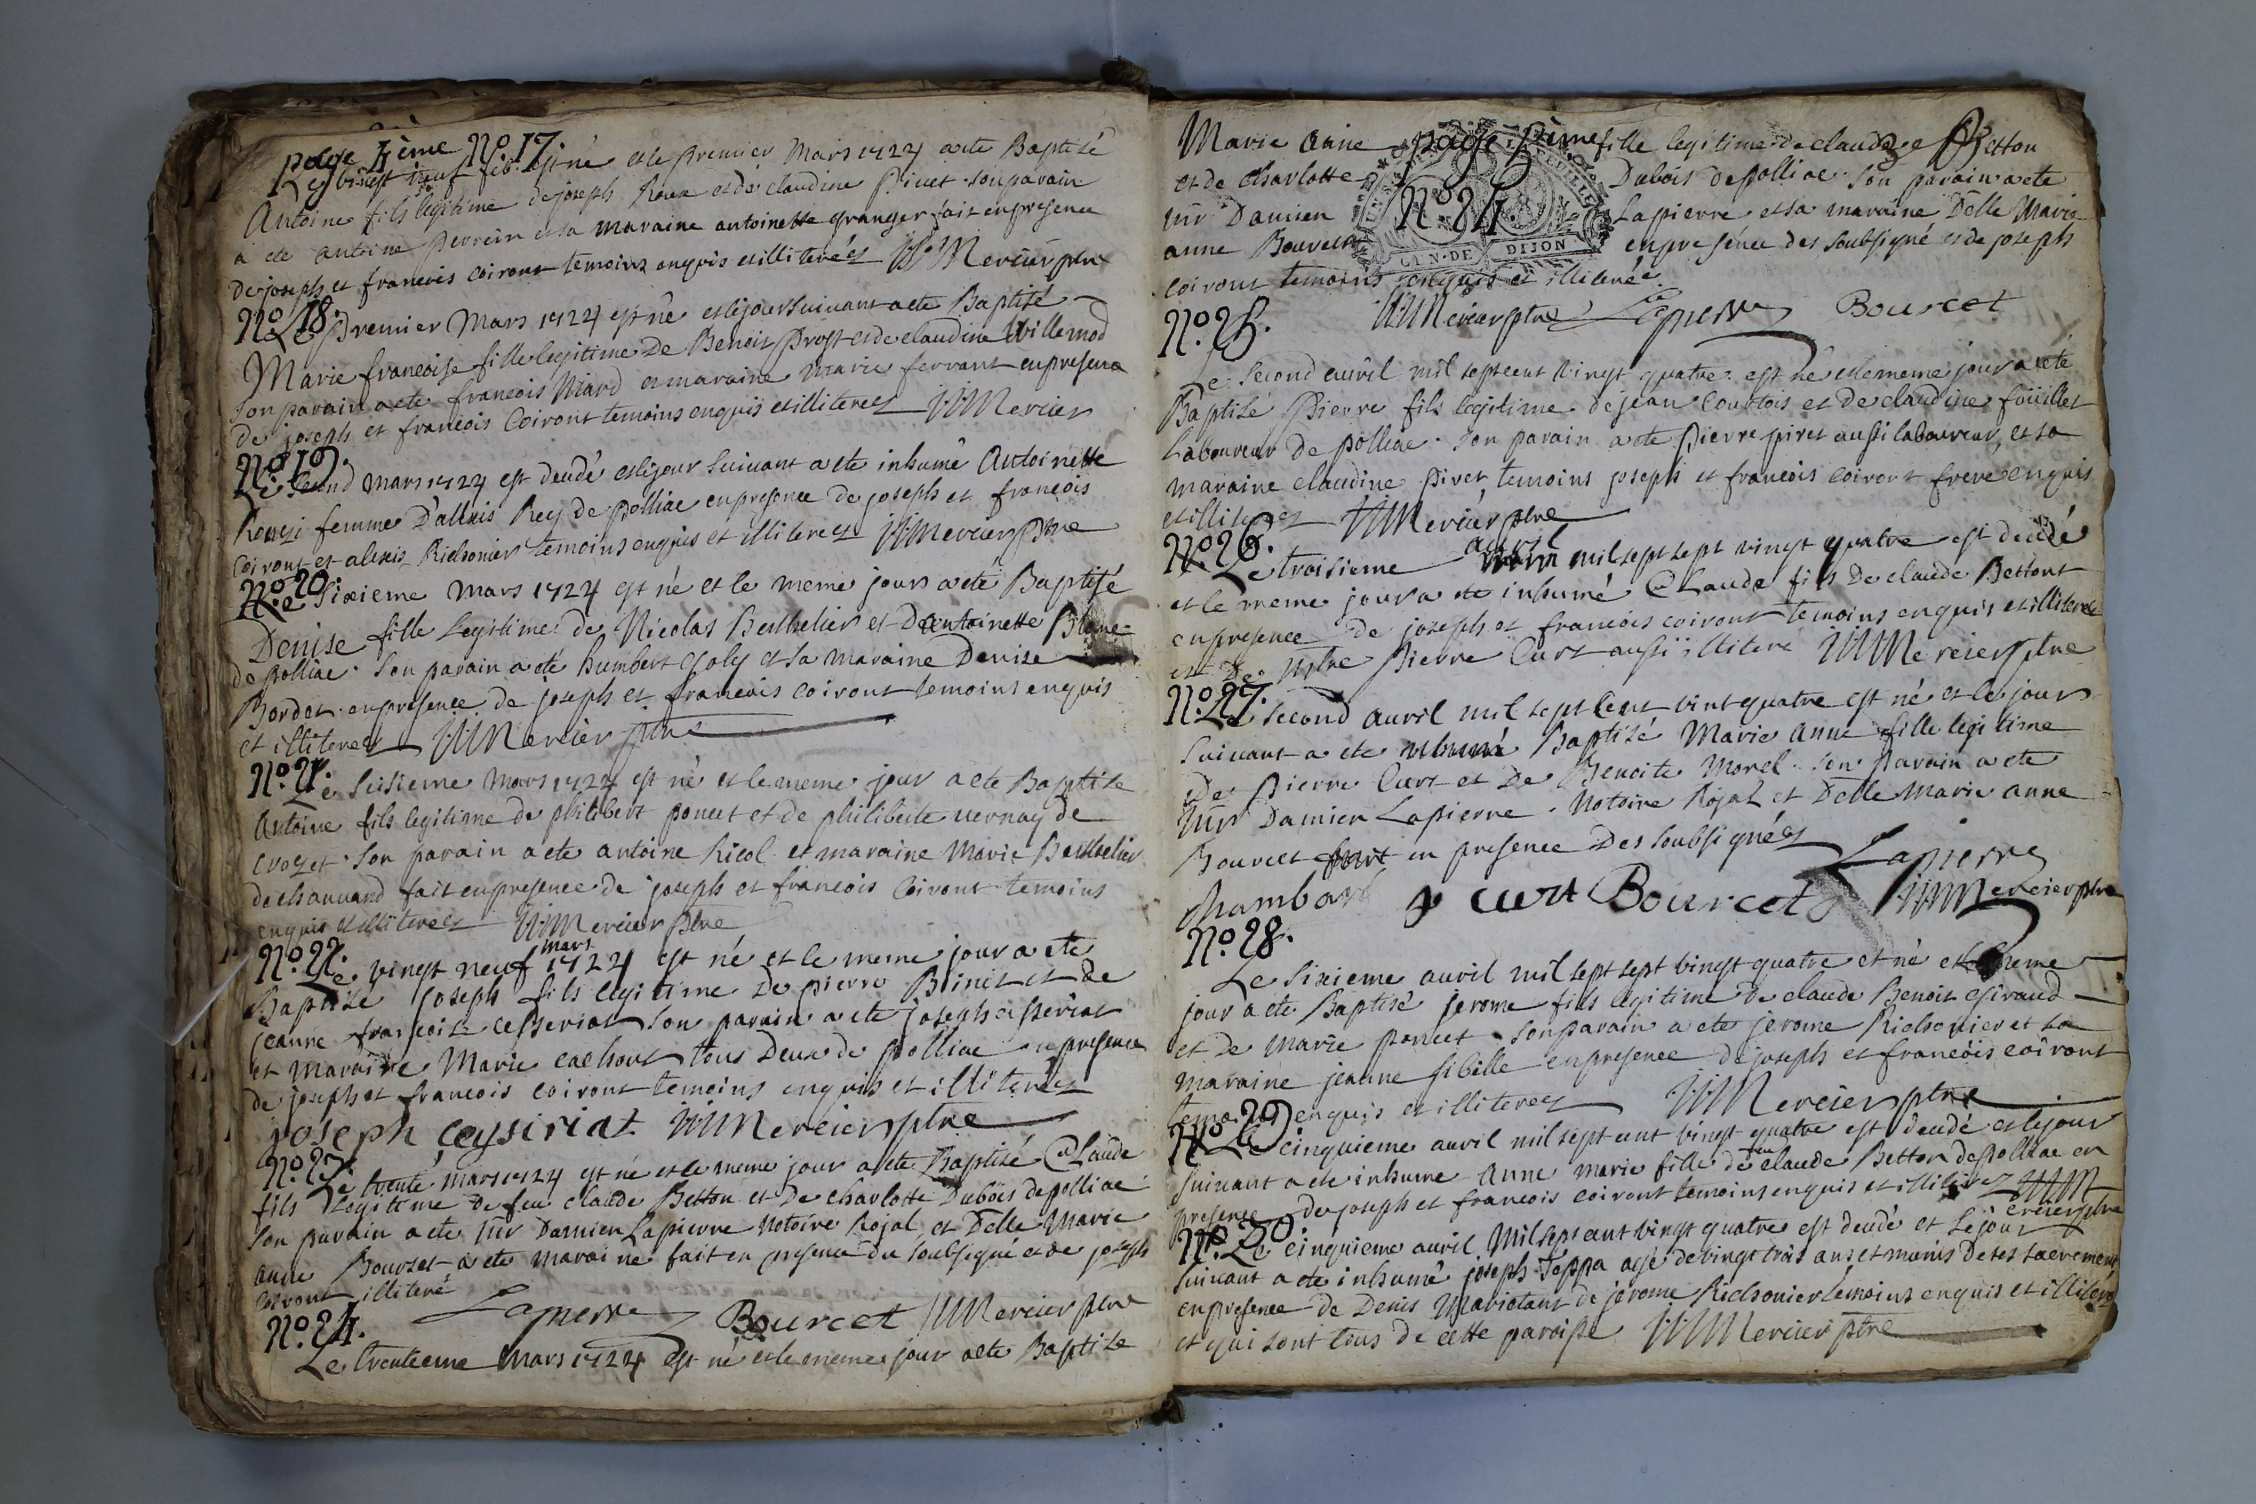 page 4ème N.º 17.
Le vingt neuf feb. est né et le premier Mars 1724 a ete Baptisé
Antoine fils legitime de joseph Roux et de claudine Pivet son parain
a ete antoine perrein et sa maraine antoinette granger fait en presence
de joseph et francois coiront temoins enquis et illiterés Mercier ptre
N.º 18.
Le premier Mars 1724 est né et le jour suivant a ete Baptisé
Marie francoise fille legitime De Benoit Prost et de claudine Willemod
son parain a ete francois Niard et maraine Marie ferrant en presence
de joseph et francois Coiront temoins enquis et illiterez Mercier
N.º 19.
Le second mars 1724 est decedé et le jour suivant a ete inhumé Antoinette
femme D'alexis Rey de polliac en presence de joseph et francois
Coiront et alexis Richonier temoins enquis et illiterez Mercier ptre
N.º 20.
Le Sixieme Mars 1724 est né et le meme jours a eté Baptisé
Denise fille Legitime de Nicolas Berthelier et D'antoinette Blanc
de polliac son parain a eté humbert Joly et sa maraine Denize
Bordet en presence de joseph et francois coiront temoins enquis
et illiterez Mercier ptre
N.º 21.
Le Sisieme Mars 1724 est né et le meme jour a ete Baptise
Antoine fils legitime de philibert poncet et de philiberte vernay de
crozet son parain a ete antoine Ricol et maraine Marie Berthelier
de chauvand fait en presence de joseph et francois Coiront temoins
enquis et illiterez Mercier ptre
N.º 22.
mars
Le vingt neuf 1724 est né et le meme jour a ete
Baptize Joseph fils legitime De pierre Binet et de
Jeanne francoise cesseriat son parain a ete joseph cesseriat
et maraine Marie cachout tous Deux de polliac en presence
de joseph et francois coiront temoins enquis et illiterez
joseph ceysiriat Mercier ptre
N.º 23.
Le trente mars 1724 est né et le meme jour a ete Baptisé Claude
fils Legitime De feu claude Betton et De charlotte Dubois de polliac
son parain a ete Mr Damien Lapierre Notoire Rojal et Delle Marie
anne Bourset a ete maraine fait en presence du soubsigné et de joseph
coiront illiteré
Lapierre Bourcet Mercier ptre
N.º 24.
Le trentieme Mars 1724 est né et le meme jour a ete Baptize
page 5ème
Marie Anne fille legitime de claude Betton
et de Charlotte Dubois de polliac son parain a ete
N.º 24.
Mr Damien Lapierre et sa maraine Delle Marie
anne Bourcet en presence des soubsigné et de joseph
GEN. DE DIJON
coiront temoins enquis et illiterée
Mercier ptre Lapierre Bourcet
N.º 25.
Le second auvril mil sept cent vingt quatre est né et le meme jour a ete
Baptisé Pierre fils legitime de jean Courtois et de claudine foüillet
Laboureur de polliac son parain a ete pierre piret aussi laboureur, et sa
maraine claudine Piret, temoins joseph et francois coiront frere enquis
et illiterez Mercier ptre
N.º 26.
auvril
Le troisieme mil sept sept vingt quatre est decedé
et le meme jour a ete inhumé Claude fils De claude Bettont
en presence de joseph et francois coiront temoins enquis et illiterée
et De Mtre Pierre Curt aussi illitere Mercier ptre
N.º 27.
Le second auvril mil sept Cent vint quatre est né et le jour
suivant a ete Baptisé Marie anne fille legitime
De Pierre Curt et De Benoite Morel son parain a ete
Mr Damien Lapierre Notoire Rojal et Delle Marie anne
Bourcet en presence Des soubsignéz
Lapierre
Chambar p curt Bourcet Mercier ptre
N.º 28.
Le sixieme auvril mil sept sept vingt quatre et né et le meme
jour a ete Baptisé jerome fils legitime De claude Benoit Giraud
et de Marie poncet son parain a ete jerome Richonier et sa
maraine jeanne sibelle en presence de joseph et francois coiront
temoins enquis et illiterez Mercier ptre
N.º 29.
Le cinquieme auvril mil sept cent vingt quatre est decedé et le jour
suivant a ete inhume Anne Marie fille de feu claude Betton de Polliac en
presence de joseph et francois coiront temoins enquis et illiterez M
ercier ptre
N.º 30.
Le cinquieme auril Mil sept cent vingt quatre est decedé et le jour
suivant a ete inhumé joseph Teppa agé de vingt trois ans et munis De ses sacrement
en presence de Denis Mariotant de jerome Richonier temoins enquis et illiterés
et qui sont tous de cette paroisse Mercier ptre